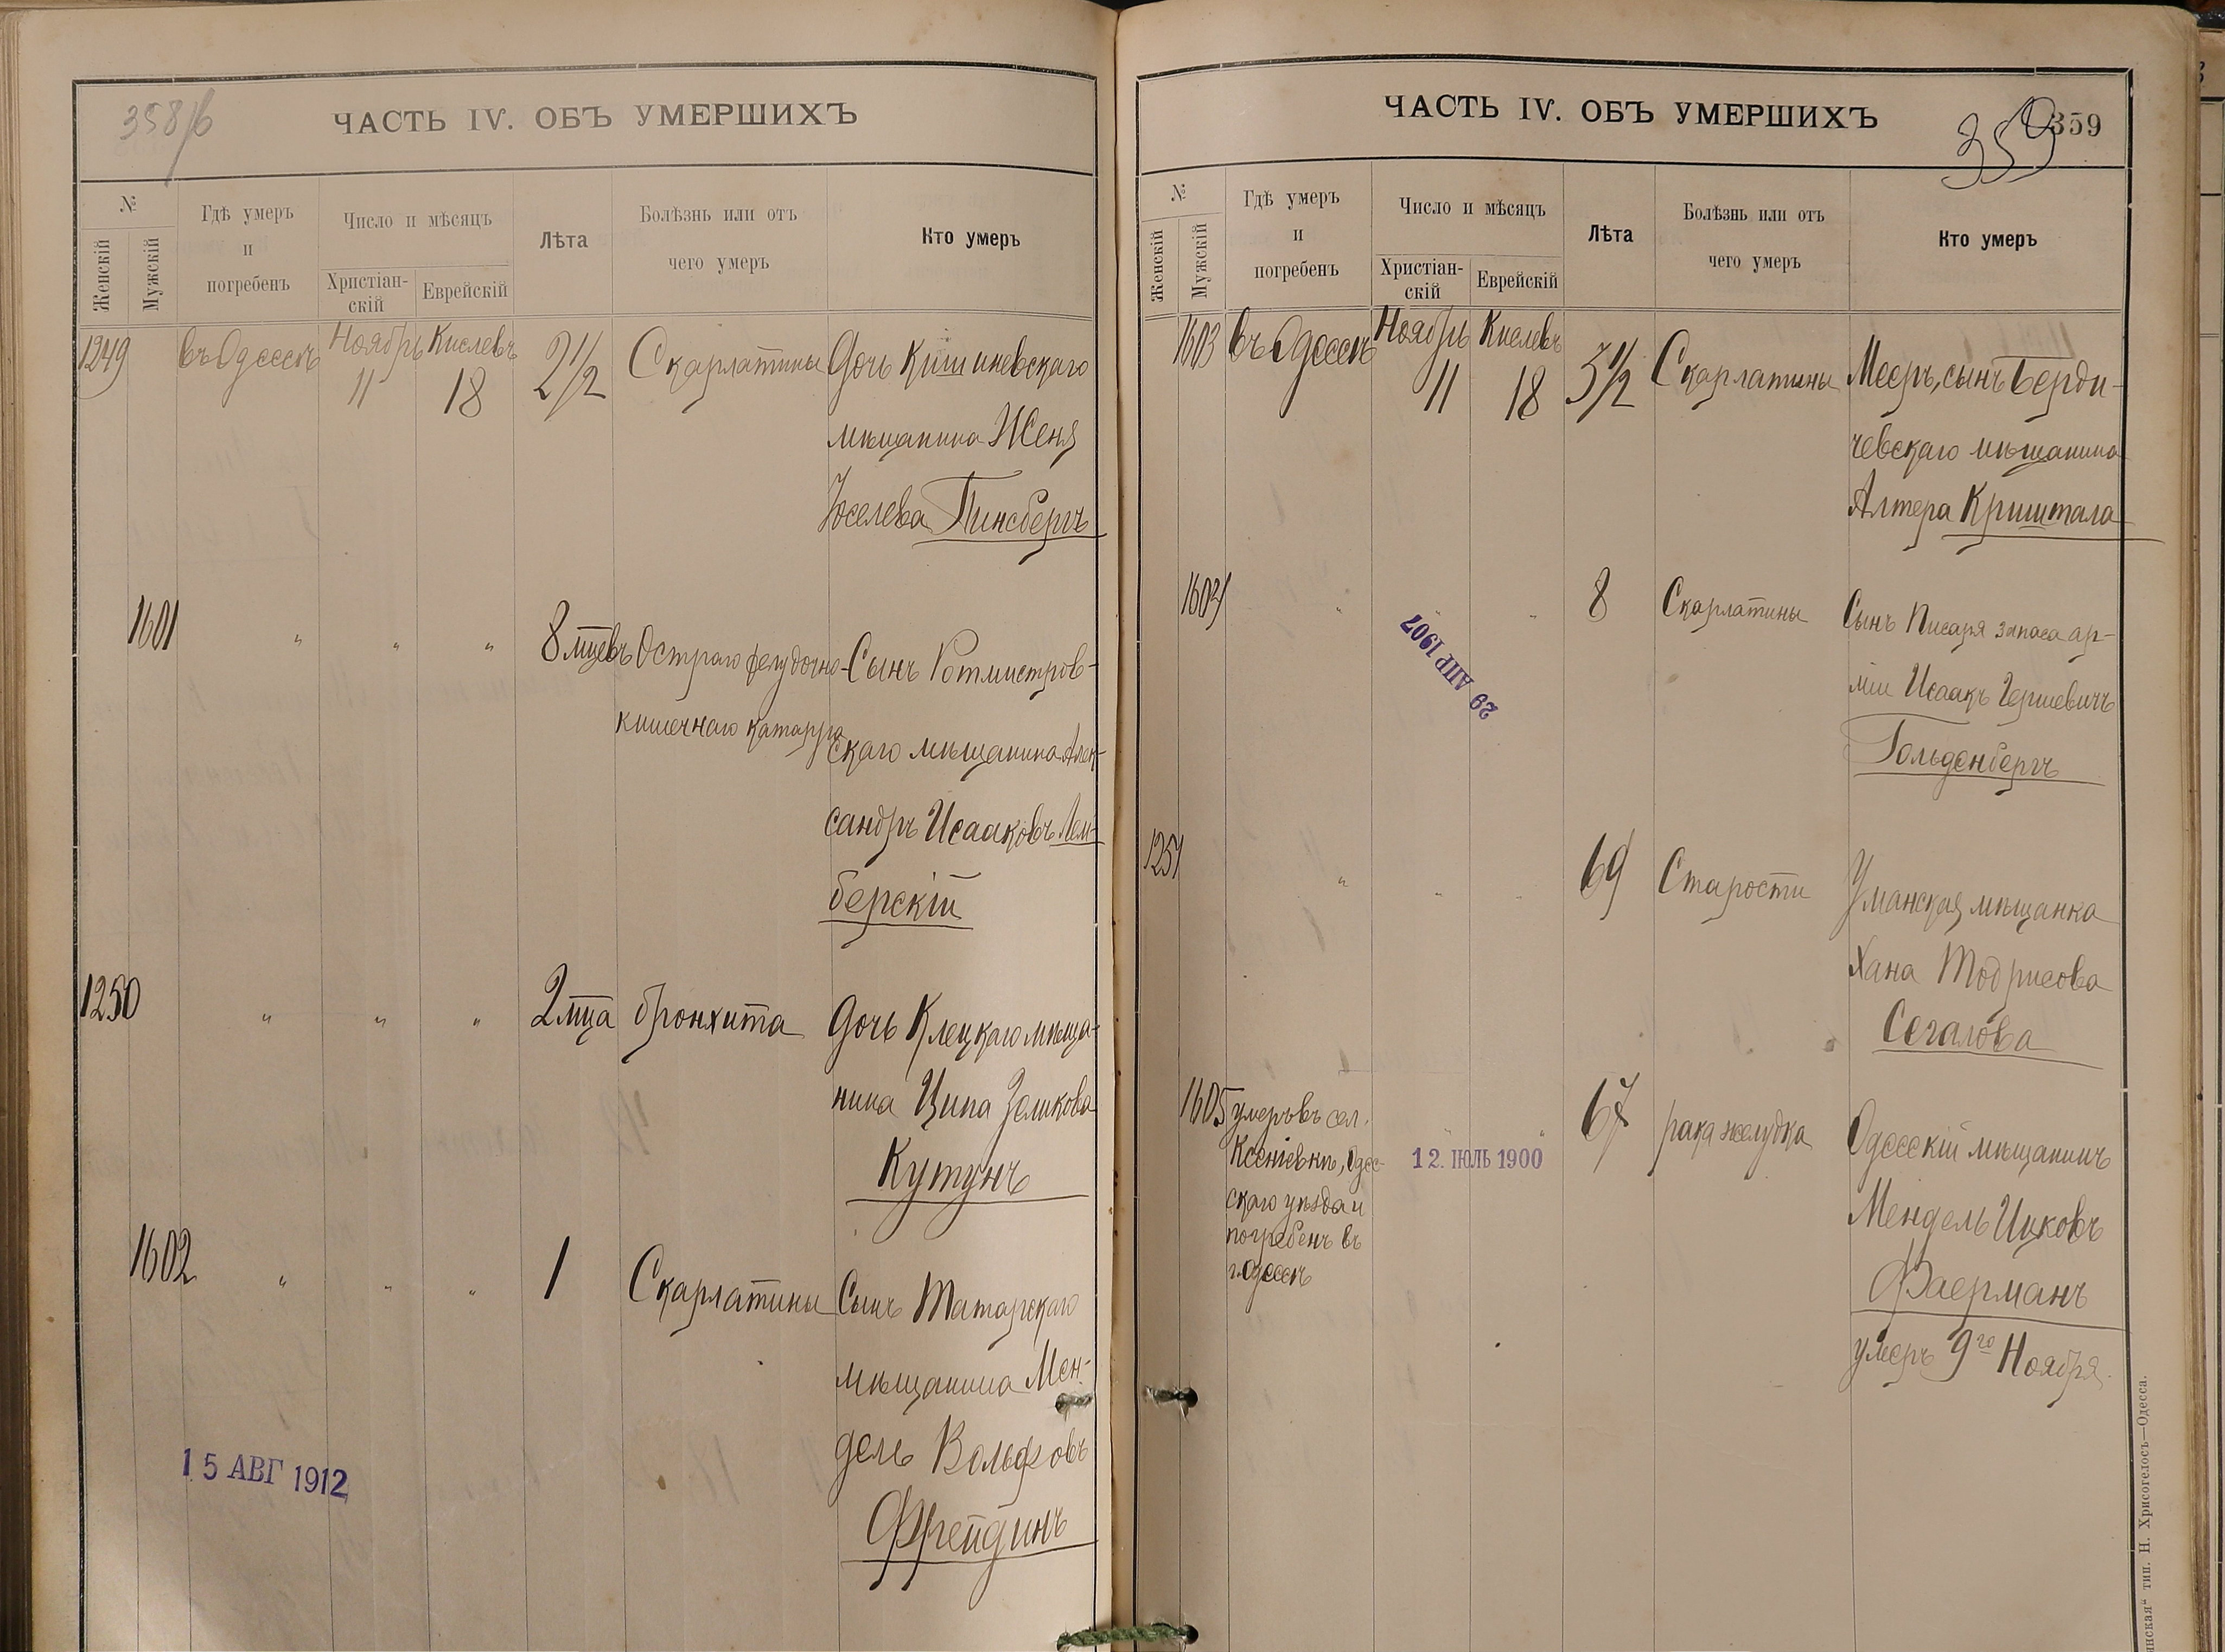 358/б
ЧАСТЬ IV. ОБЪ УМЕРШИХЪ
№
Женскій
Мужскій
Гдѣ умеръ
и
погребенъ
Число и мѣсяцъ
Христіан-
скій
Еврейскій
Лѣта
Болѣзнь или отъ
чего умеръ
Кто умеръ
1249 въ Одессѣ Ноябрь 11 Кислевъ 18 2 1/2 Скарлатины Дочь Кишиневскаго
мѣщанина Женя
Іоселева Гинсбергъ
1601 " " " 8 мцевъ Остраго желудочно- Сынъ Ротмистров-
кишечнаго катарра скаго мѣщанина Алек-
сандръ Исааковъ Лем-
берскій
1250 " " " 2 мца бронхита Дочь Клецкаго мѣща-
нина Ципа Зеликова
Кутунъ
1602 " " " 1 Скарлатины Сынъ Татарскаго
мѣщанина Мен-
дель Вольфовъ
Фрейдинъ
15 АВГ 1912
ЧАСТЬ IV. ОБЪ УМЕРШИХЪ
359
359
№
Женскій
Мужскій
Гдѣ умеръ
и
погребенъ
Число и мѣсяцъ
Христіан-
скій
Еврейскій
Лѣта
Болѣзнь или отъ
чего умеръ
Кто умеръ
1603 въ Одессѣ Ноябрь 11 Кислевъ 18 3 1/2 Скарлатины Мееръ, сынъ Берди-
чевскаго мѣщанина
Алтера Криштала
1604 " " " 8 Скарлатины Сынъ Писаря запаса ар-
міи Исаакъ Гершевичъ
Гольденбергъ
29 АПР 1907
1251 " " " 69 Старости Уманская мѣщанка
Хана Тодрисова
Сегалова
1605 умеръ въ сел.
Ксеніевкѣ, Одес-
скаго уѣзда и
погребенъ въ
г. Одессѣ
" " 67 рака желудка Одесскій мѣщанинъ
Мендель Ицковъ
Фаерманъ
умеръ 9го Ноября.
12. ІЮЛЬ 1900
тип. Н. Хрисогелосъ—Одесса.